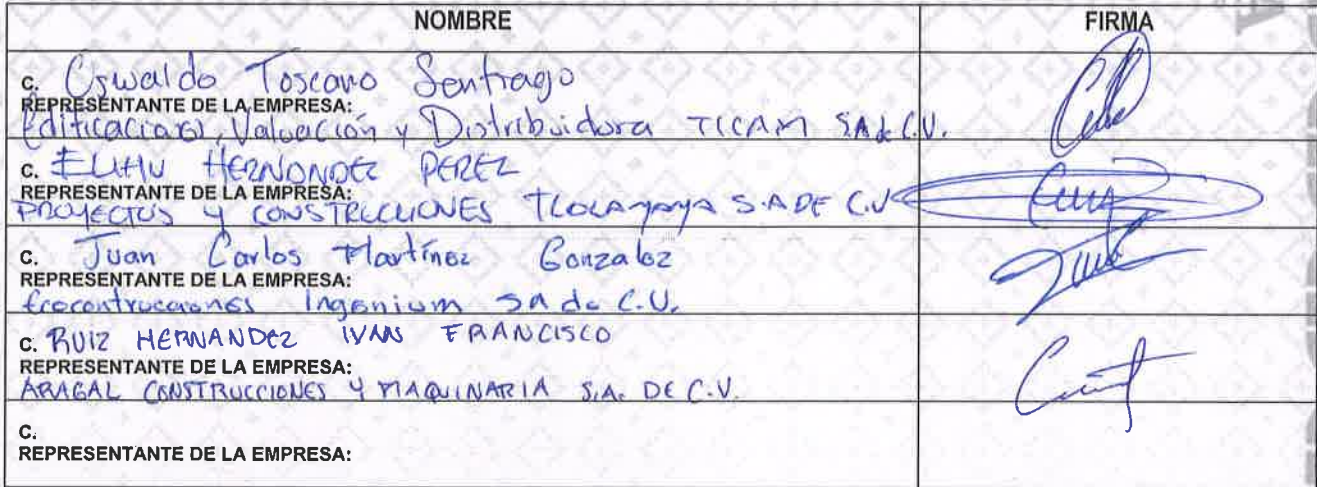 NOMBRE FIRMA
C. Oswaldo Toscano Santiago
REPRESENTANTE DE LA EMPRESA:
Edificaciones, Valuación y Distribuidora TICAM SA de C.V.
C. ELIHU HERNANDEZ PEREZ
REPRESENTANTE DE LA EMPRESA:
PROYECTOS Y CONSTRUCCIONES S.A DE C.V
C. Juan Carlos Martínez Gonzalez
REPRESENTANTE DE LA EMPRESA:
Ingenium SA de C.V.
C. RUIZ HERNANDEZ IVAN FRANCISCO
REPRESENTANTE DE LA EMPRESA:
ARAGAL CONSTRUCCIONES Y MAQUINARIA S.A. DE C.V.
C.
REPRESENTANTE DE LA EMPRESA: